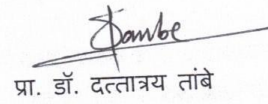 Tambe
प्रा. डॉ. दत्तात्रय तांबे